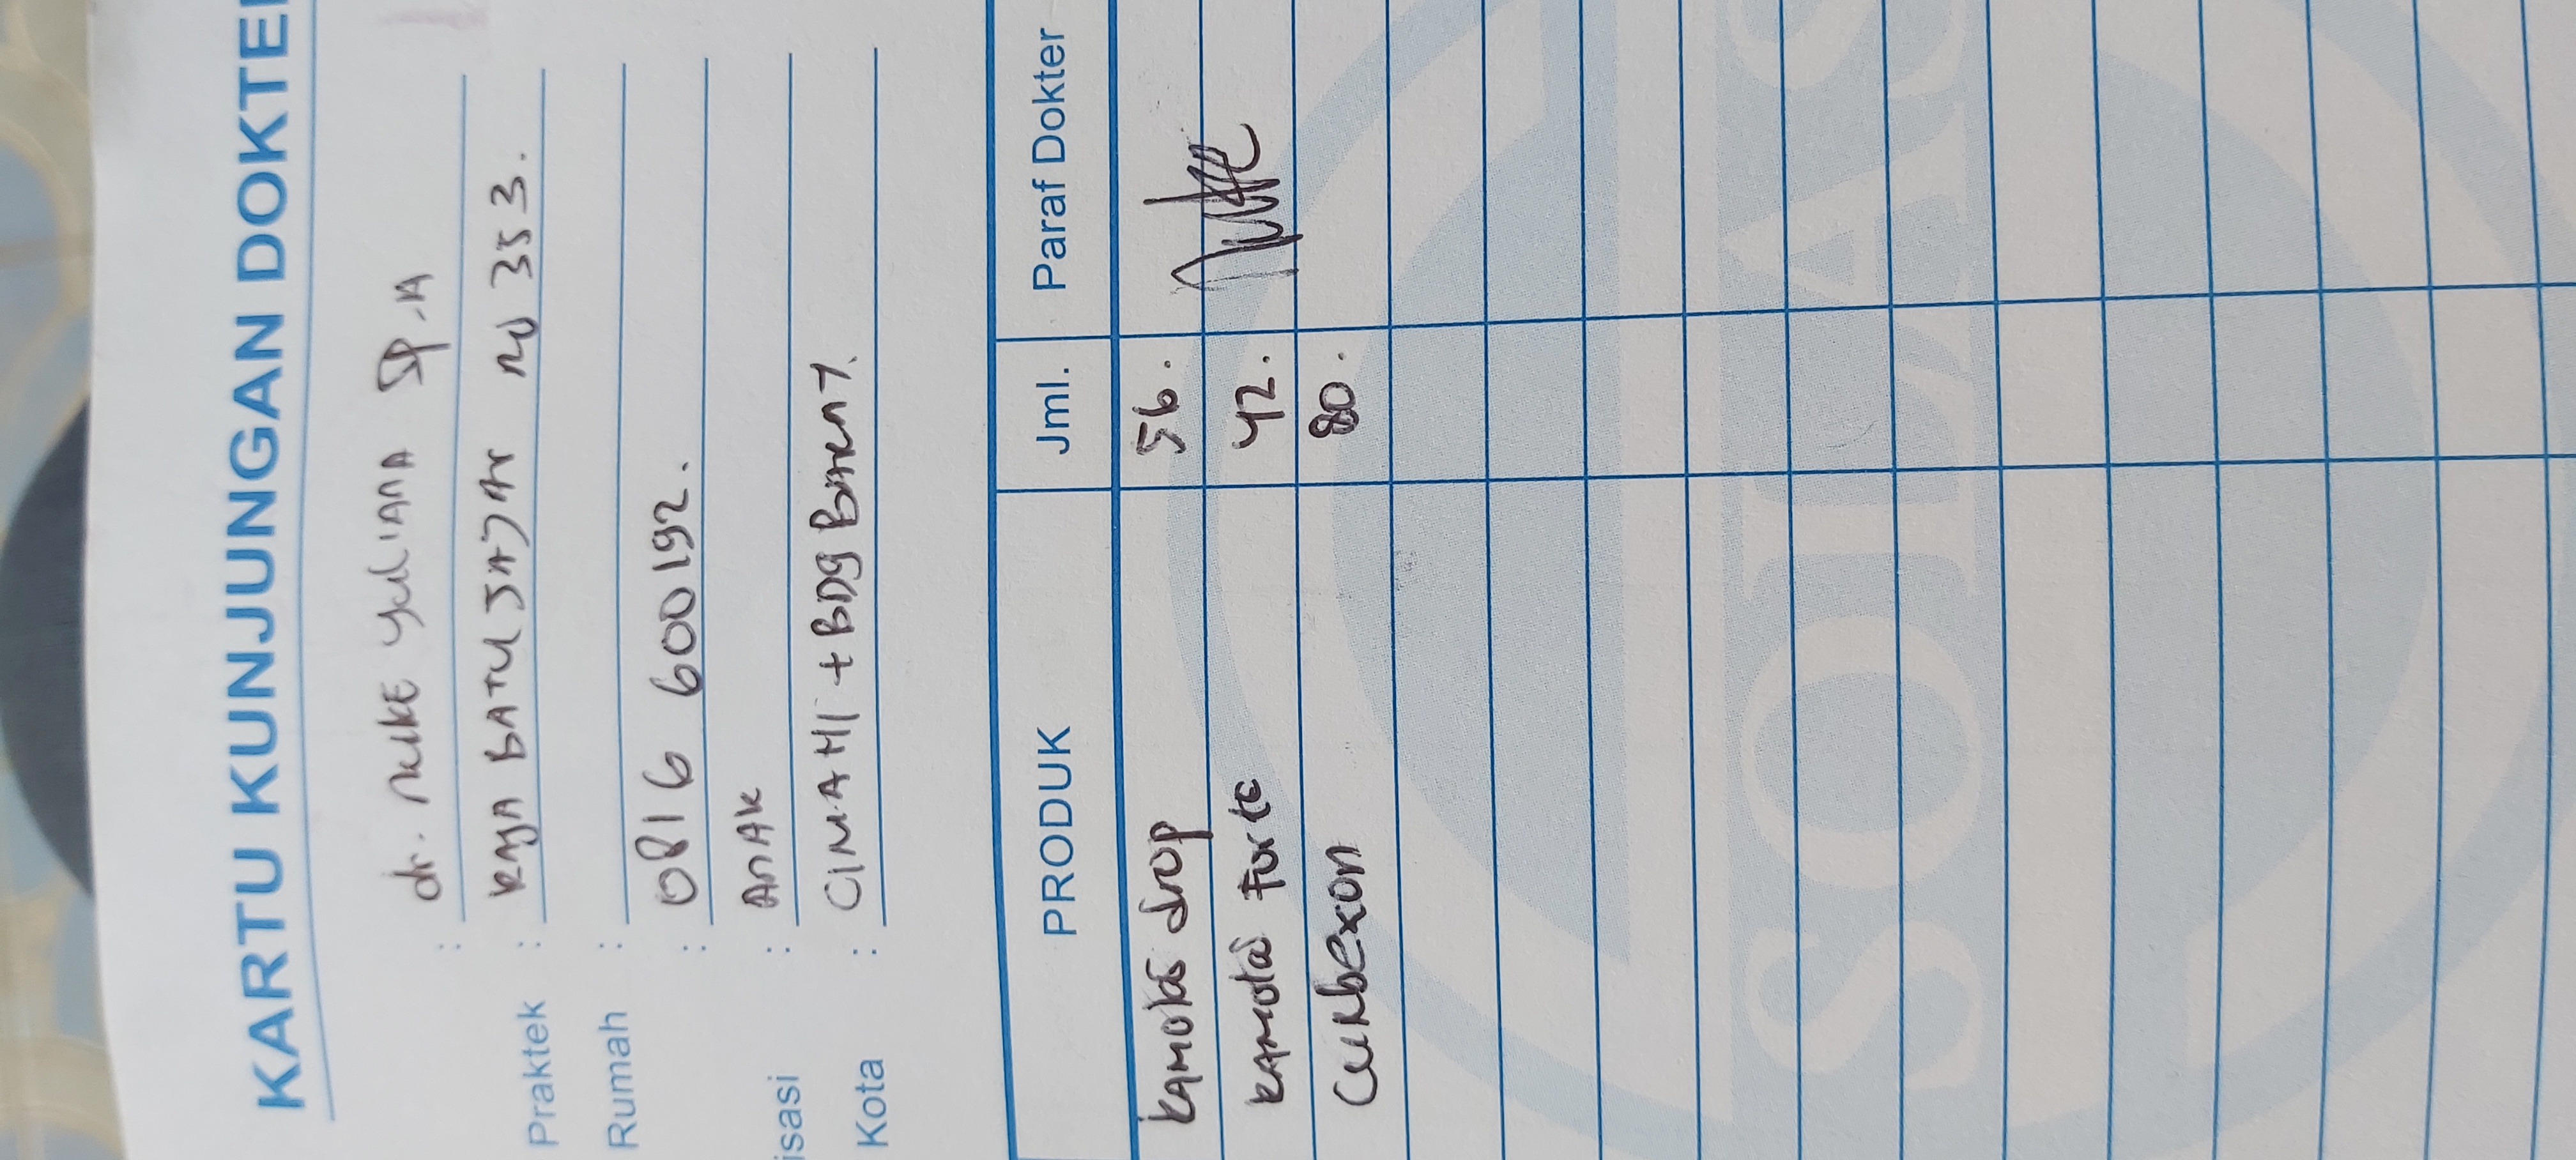 KARTU KUNJUNGAN DOKTE
: dr. Nuke Yuliana Sp.A
Praktek : RAJA BATUJAJAR NO 353.
Rumah :
: 0816 600192.
isasi : ANAK
Kota : CIMAHI + BDG BARAT.
PRODUK Jml. Paraf Dokter
drop 56.
Forte 42. Nuke
Curbexon 80.
SOLAS